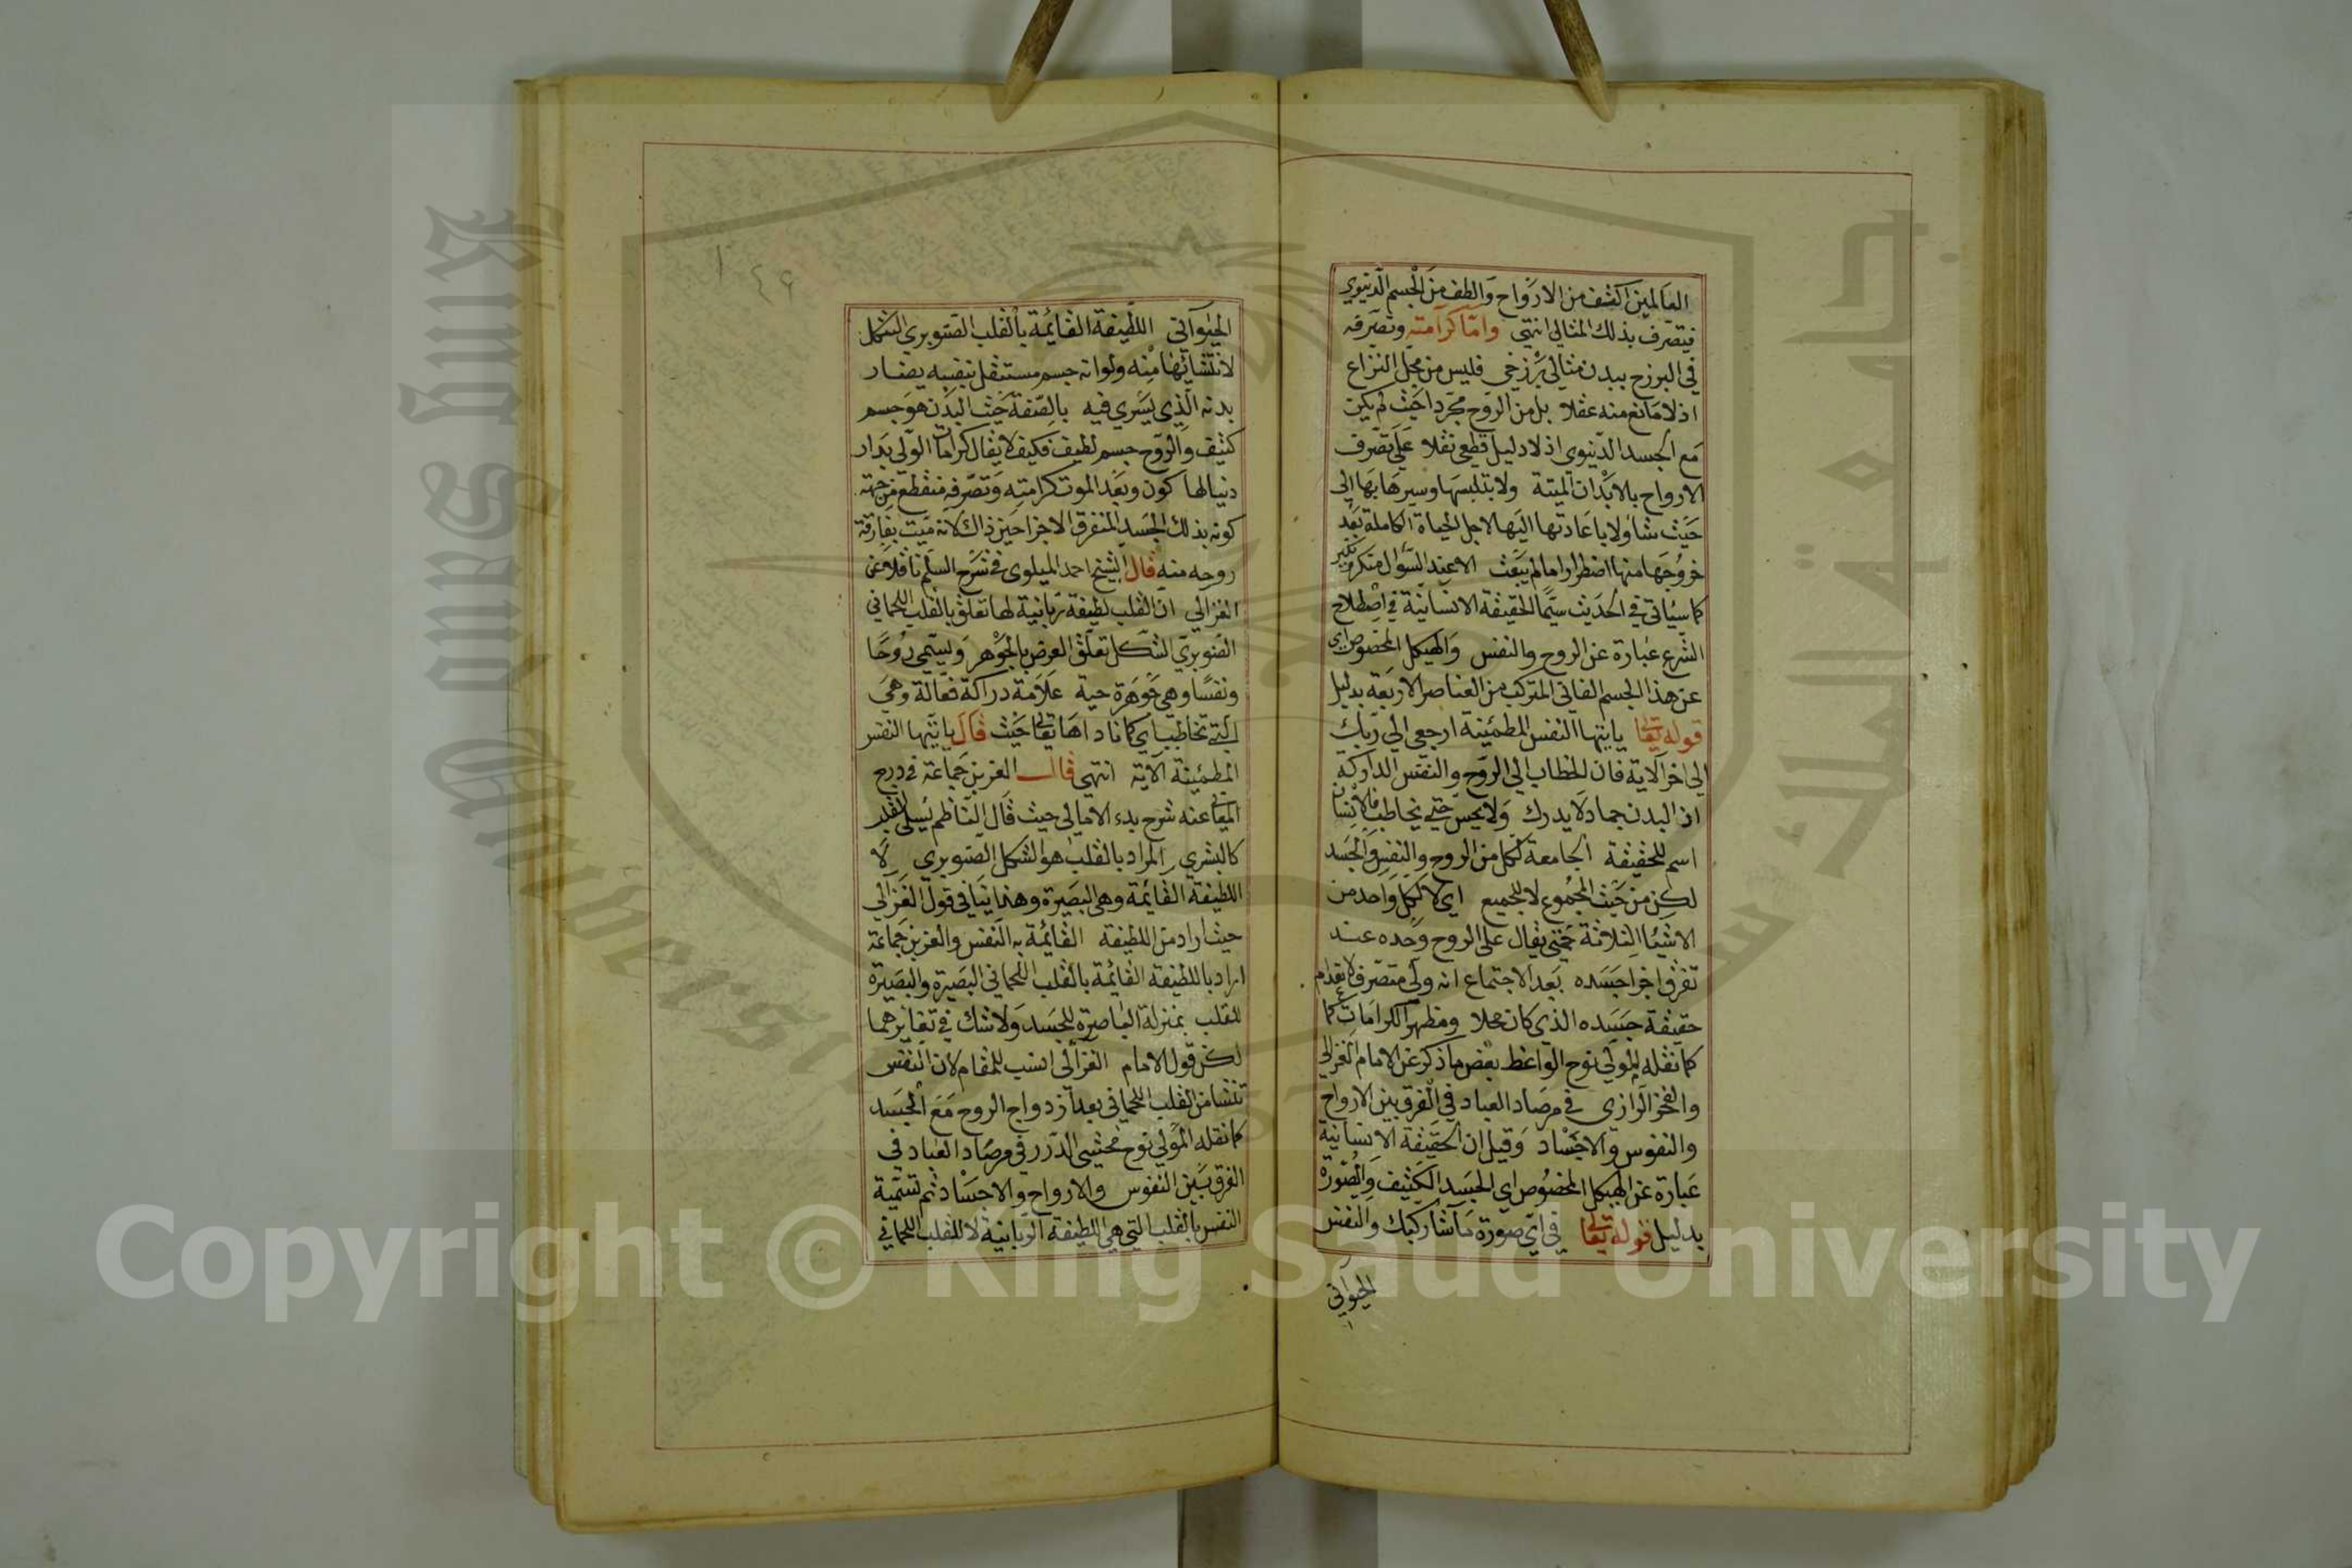 العالمين اكشف من الارواح والطف من الجسم الدنيوي
فيتصرف بذلك المثالي انتهى واما كرامته وتصرفه
في البرزخ ببدن مثالي برزخي فليس من محل النزاع
اذ لا مانع منه عقلا بل من الروح مجردا حيث لم يكن
مع الجسد الدنيوي اذ لا دليل قطعي نقلا على تصرف
الارواح بالابدان الميتة ولا بتلبسها وسيرها بها الى
حيث شاؤ ولا باعادتها اليها لاجل الحياة الكاملة بعد
خروجها منها اضطرارا ما لم يبعث الا عند السؤال منكر نكير
كما سياتي في الحديث سيما الحقيقة الانسانية في اصطلاح
الشرع عبارة عن الروح والنفس والهيكل المخصوص اي
عن هذا الجسم الفاني المتركب من العناصر الاربعة بدليل
قوله تعالى يايتها النفس المطمئينة ارجعي الى ربك
الى اخر الاية فان الخطاب الى الروح والنفس الداركة
اذ البدن جماد لا يدرك ولا يحس حتى يخاطب فالانسان
اسم للحقيقة الجامعة لكل من الروح والنفس والجسد
لكن من حيث المجموع لا للجميع اي لا لكل واحد من
الاشيا الثلاثة حتى يقال على الروح وحده عند
تفرق اجزا جسده بعد الاجتماع انه ولي متصرف لانعدام
حقيقة جسده الذي كان محلا ومظهرا لكرامات كما
كما نقله المولى نوح الواعظ بعض ما ذكر عن الامام الغزالي
والفخر الرازي في مرصاد العباد في الفرق بين الارواح
والنفوس والاجساد وقيل ان الحقيقة الانسانية
عبارة عن الهيكل المخصوص اي الجسد الكثيف والصورة
بدليل قوله تعالى في اي صورة ما شا ركبك والنفس
الحيواني
الحيواني اللطيفة القائمة بالقلب الصنوبري الشكل
لانتشائها منه ولو انه جسم مستقل بنفسه يضار
بدنه الذي يسري فيه بالصفة حيث البدن هو جسم
كثيف والروح جسم لطيف فكيف لا يقال كرامات الولي بدار
دنيا لها كون وبعد الموت كرامته وتصرفه منقطع من جهة
كونه بذلك الجسد المتفرق الاجزا حين ذاك لانه ميت بفارقة
روحه منه قال الشيخ احمد الميلوى في شرح السلم ناقلا عن
الغزالي ان القلب لطيفة ربانية لها تعلق بالقلب اللحماني
الصنوبري الشكل تعلق العرض بالجوهر وليسمى روحا
ونفسا وهي جوهرة حية علامة دراكة فعالة وهي
التي تخاطب اي كما ناداها تعالى حيث قال يايتها النفس
المطمئينة الاية انتهى قال العز بن جماعة في درج
المعالي عنه شرح بدء الامالي حيث قال الناظم يسلى القلب
كالبشري المراد بالقلب هو الشكل الصنوبري لا
اللطيفة القائمة وهي البصيرة وهذا ينافي قول الغزالي
حيث اراد من اللطيفة القائمة به النفس والعز بن جماعة
اراد باللطيفة القائمة بالقلب اللحماني البصيرة والبصيرة
للقلب بمنزلة الباصرة للجسد ولا شك في تغايرهما
لكن قول الامام الغزالي انسب للمقام لان النفس
تنشا من القلب اللحماني بعد ازدواج الروح مع الجسد
كما نقله المولى نوح محشي الدرر في مرصاد العباد في
الفرق بين النفوس والارواح والاجساد ثم تسمية
النفس بالقلب التي هي اللطيفة الربانية لا للقلب اللحماني
King Saud University
جامعة الملك سعود
Copyright © King Saud University